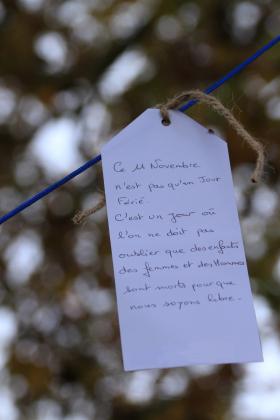 Ce 11 Novembre
n'est pas qu'un Jour
Férié.
C'est un jour où
l'on ne doit pas
oublier que des enfants
des femmes et des Hommes
sont morts pour que
nous soyons libre.